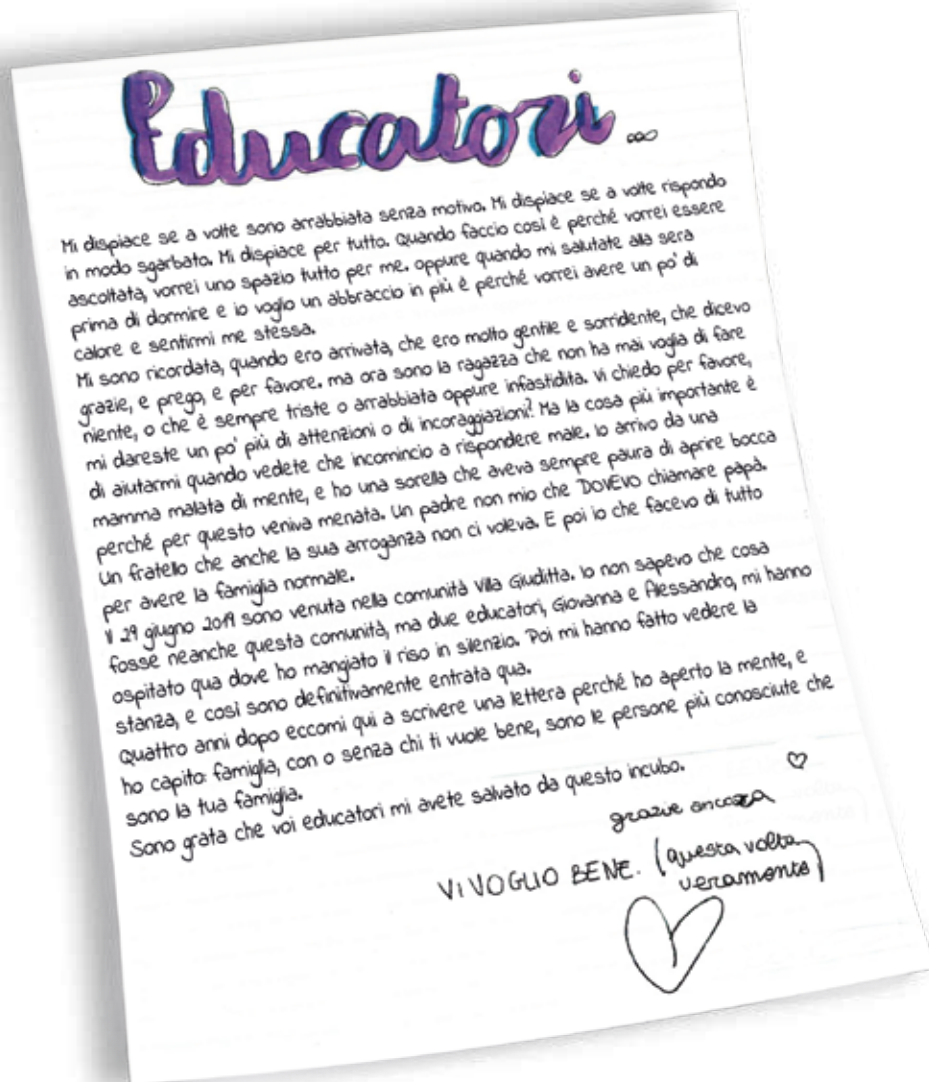 Educatori...
Mi dispiace se a volte sono arrabbiata senza motivo. Mi dispiace se a volte rispondo
in modo sgarbato. Mi dispiace per tutto. Quando faccio così è perché vorrei essere
ascoltata, vorrei uno spazio tutto per me. oppure quando mi salutate alla sera
prima di dormire e io voglio un abbraccio in più è perché vorrei avere un po' di
calore e sentirmi me stessa.
Mi sono ricordata, quando ero arrivata, che ero molto gentile e sorridente, che dicevo
grazie, e prego, e per favore. ma ora sono la ragazza che non ha mai voglia di fare
niente, o che è sempre triste o arrabbiata oppure infastidita. Vi chiedo per favore,
mi dareste un po' più di attenzioni o di incoraggiazioni? Ma la cosa più importante è
di aiutarmi quando vedete che incomincio a rispondere male. Io arrivo da una
mamma malata di mente, e ho una sorella che aveva sempre paura di aprire bocca
perché per questo veniva menata. Un padre non mio che DOVEVO chiamare papà.
Un fratello che anche la sua arroganza non ci voleva. E poi io che facevo di tutto
per avere la famiglia normale.
Il 29 giugno 2019 sono venuta nella comunità Villa Giuditta. Io non sapevo che cosa
fosse neanche questa comunità, ma due educatori, Giovanna e Alessandro, mi hanno
ospitato qua dove ho mangiato il riso in silenzio. Poi mi hanno fatto vedere la
stanza, e così sono definitivamente entrata qua.
Quattro anni dopo eccomi qui a scrivere una lettera perché ho aperto la mente, e
ho capito: famiglia, con o senza chi ti vuole bene, sono le persone più conosciute che
sono la tua famiglia.
Sono grata che voi educatori mi avete salvato da questo incubo.
grazie ancora
VI VOGLIO BENE. (questa volta
veramente)